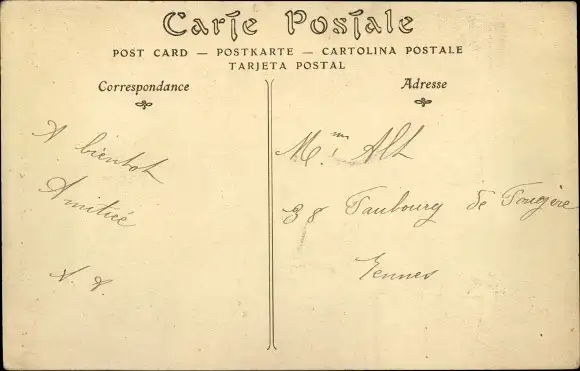 Carte Postale
POST CARD — POSTKARTE — CARTOLINA POSTALE
TARJETA POSTAL
Correspondance
A bientot
Amitiée
Adresse
M.me Alh
38 Faubourg de Fougère
Rennes